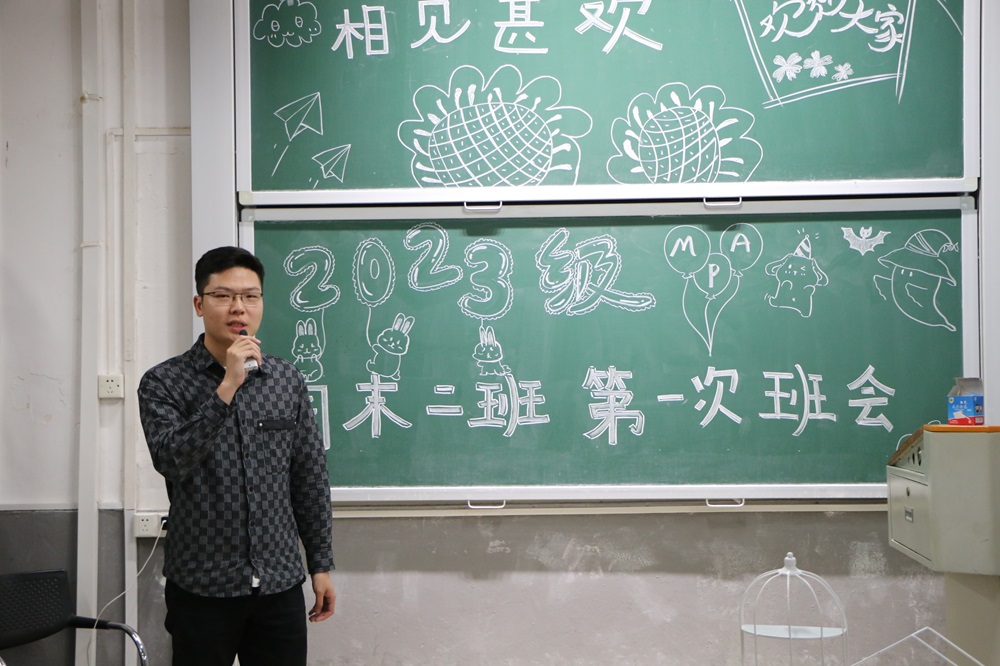 相见甚欢
欢迎大家
2023级
MPA
周末二班第一次班会